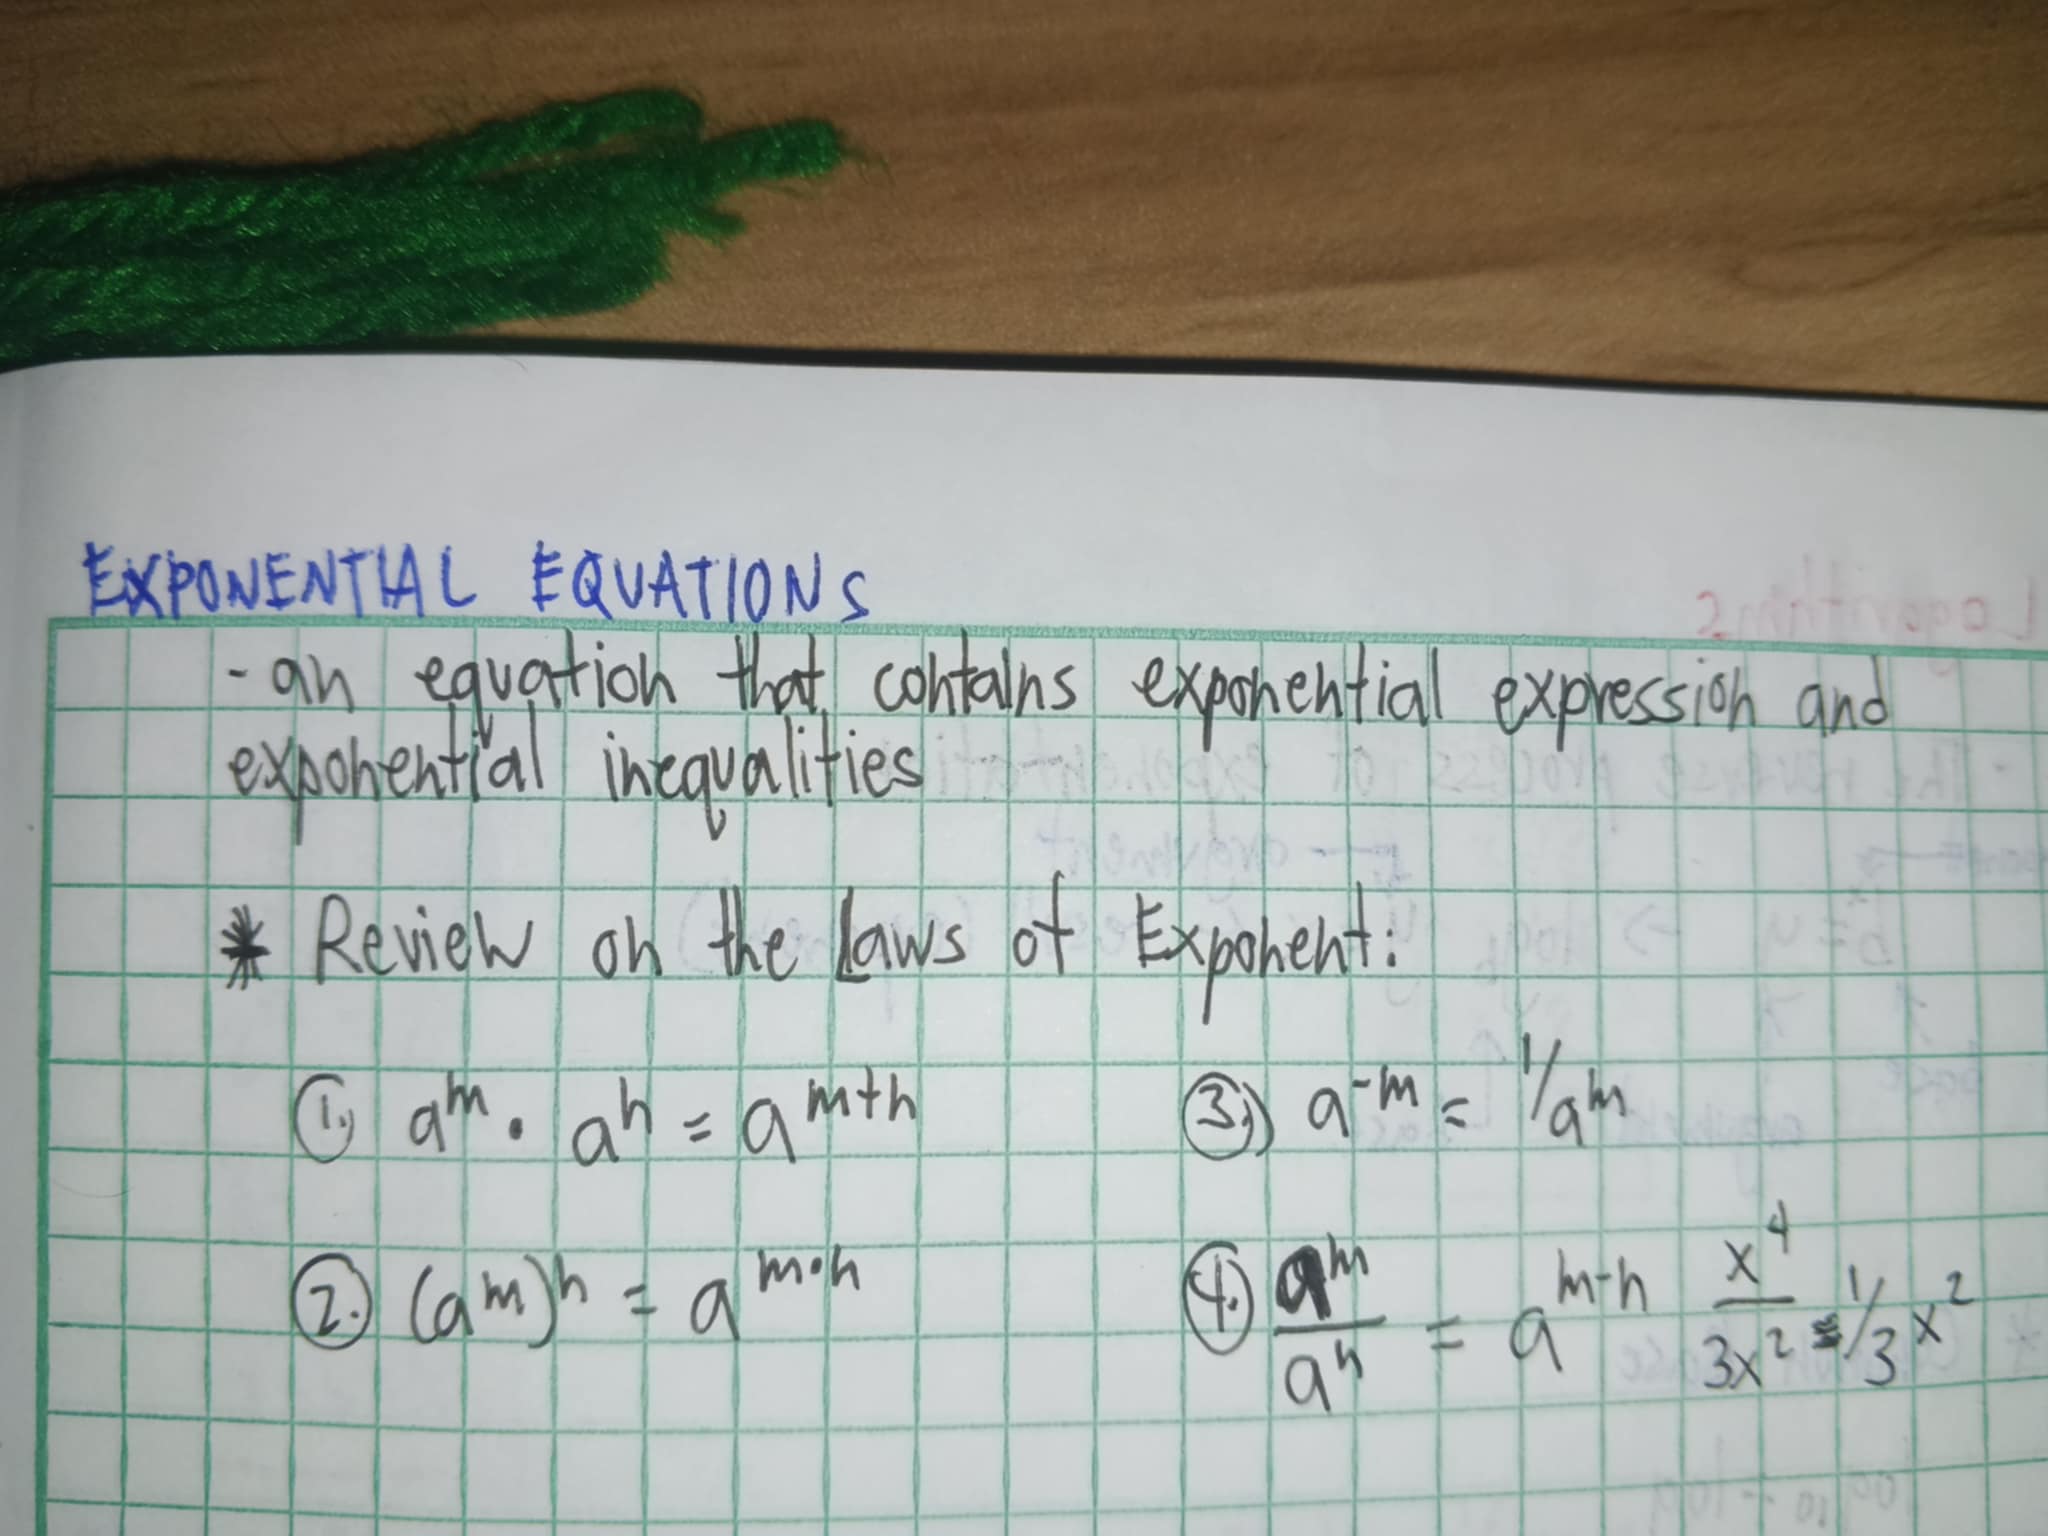 EXPONENTIAL EQUATIONS
- an equation that contains exponential expression and
exponential inequalities
* Review on the Laws of Exponent:
1. a^m · a^n = a^(m+n)
3.) a^-m = 1/a^m
2. (a^m)^n = a^(m·n)
4. a^m/a^n = a^(m-n) x^4/3x^2 = 1/3 x^2